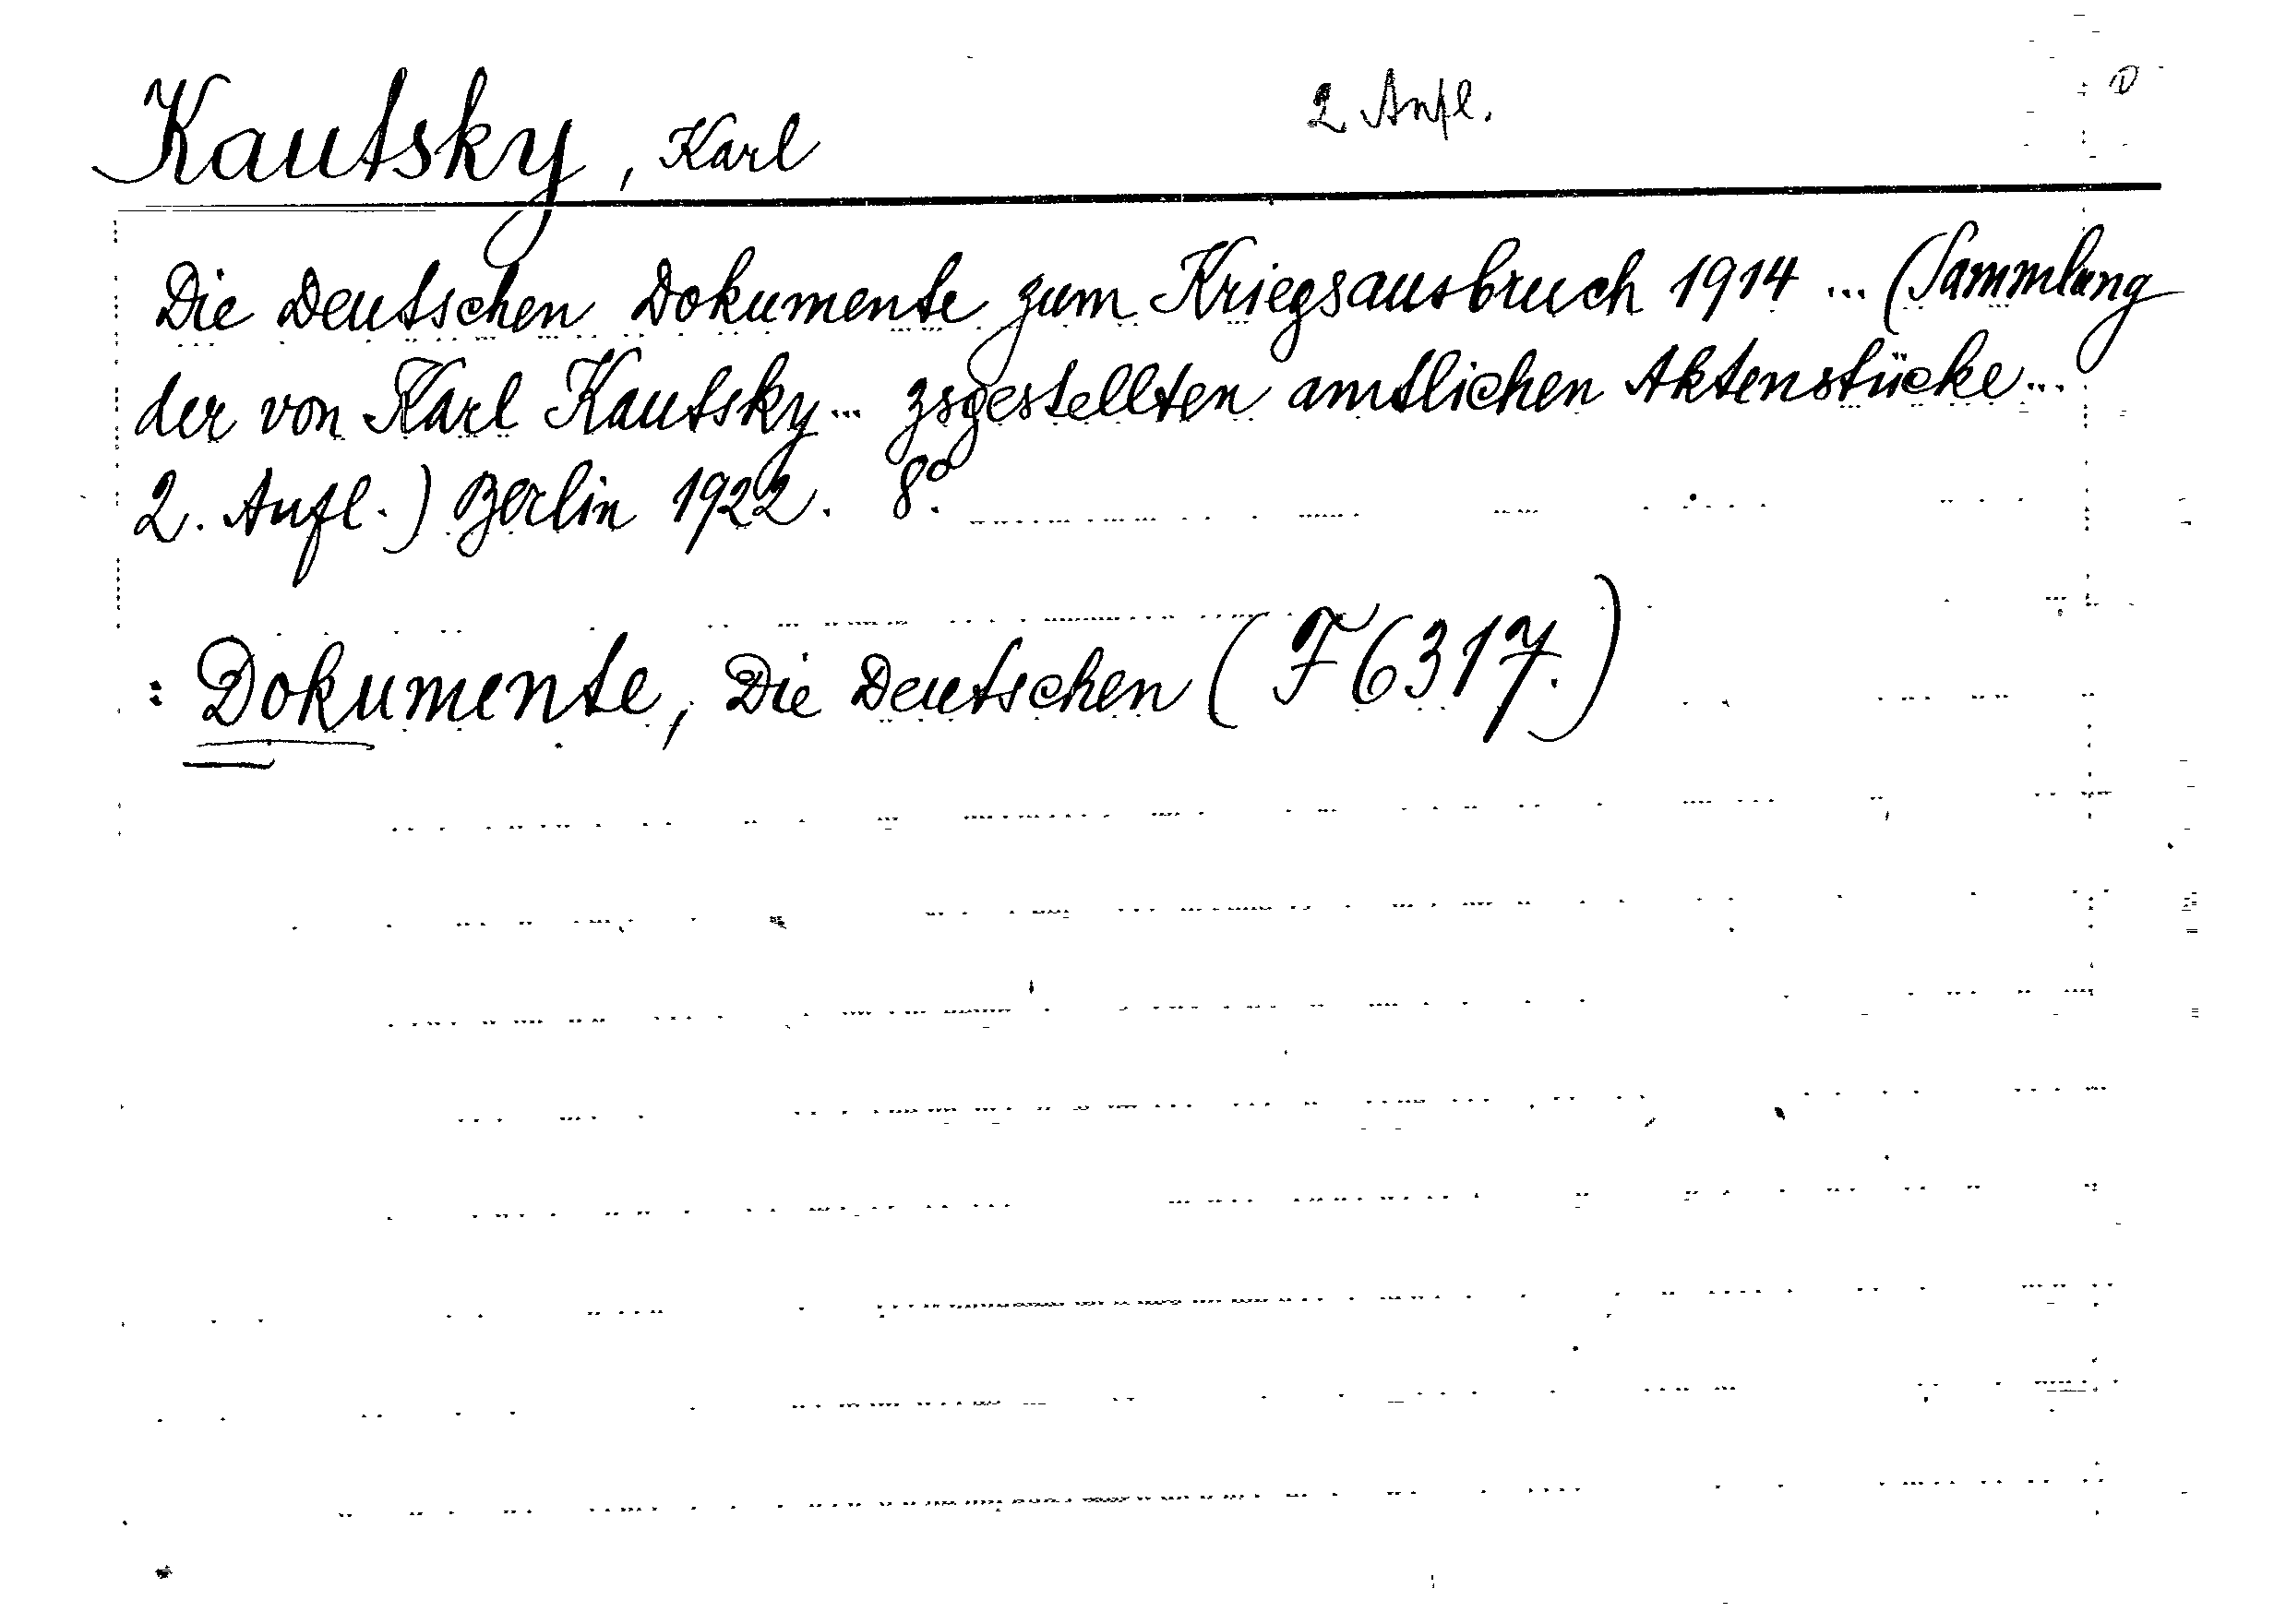 Kautsky, Karl 2 Aufl.
Die Deutschen Dokumente zum Kriegsausbruch 1914 ... (Sammlung
der von Karl Kautsky ... zsgestellten amtlichen Aktenstücke ...
2. Aufl.) Berlin 1922. 8°.
: Dokumente, Die Deutschen (F 6317.)